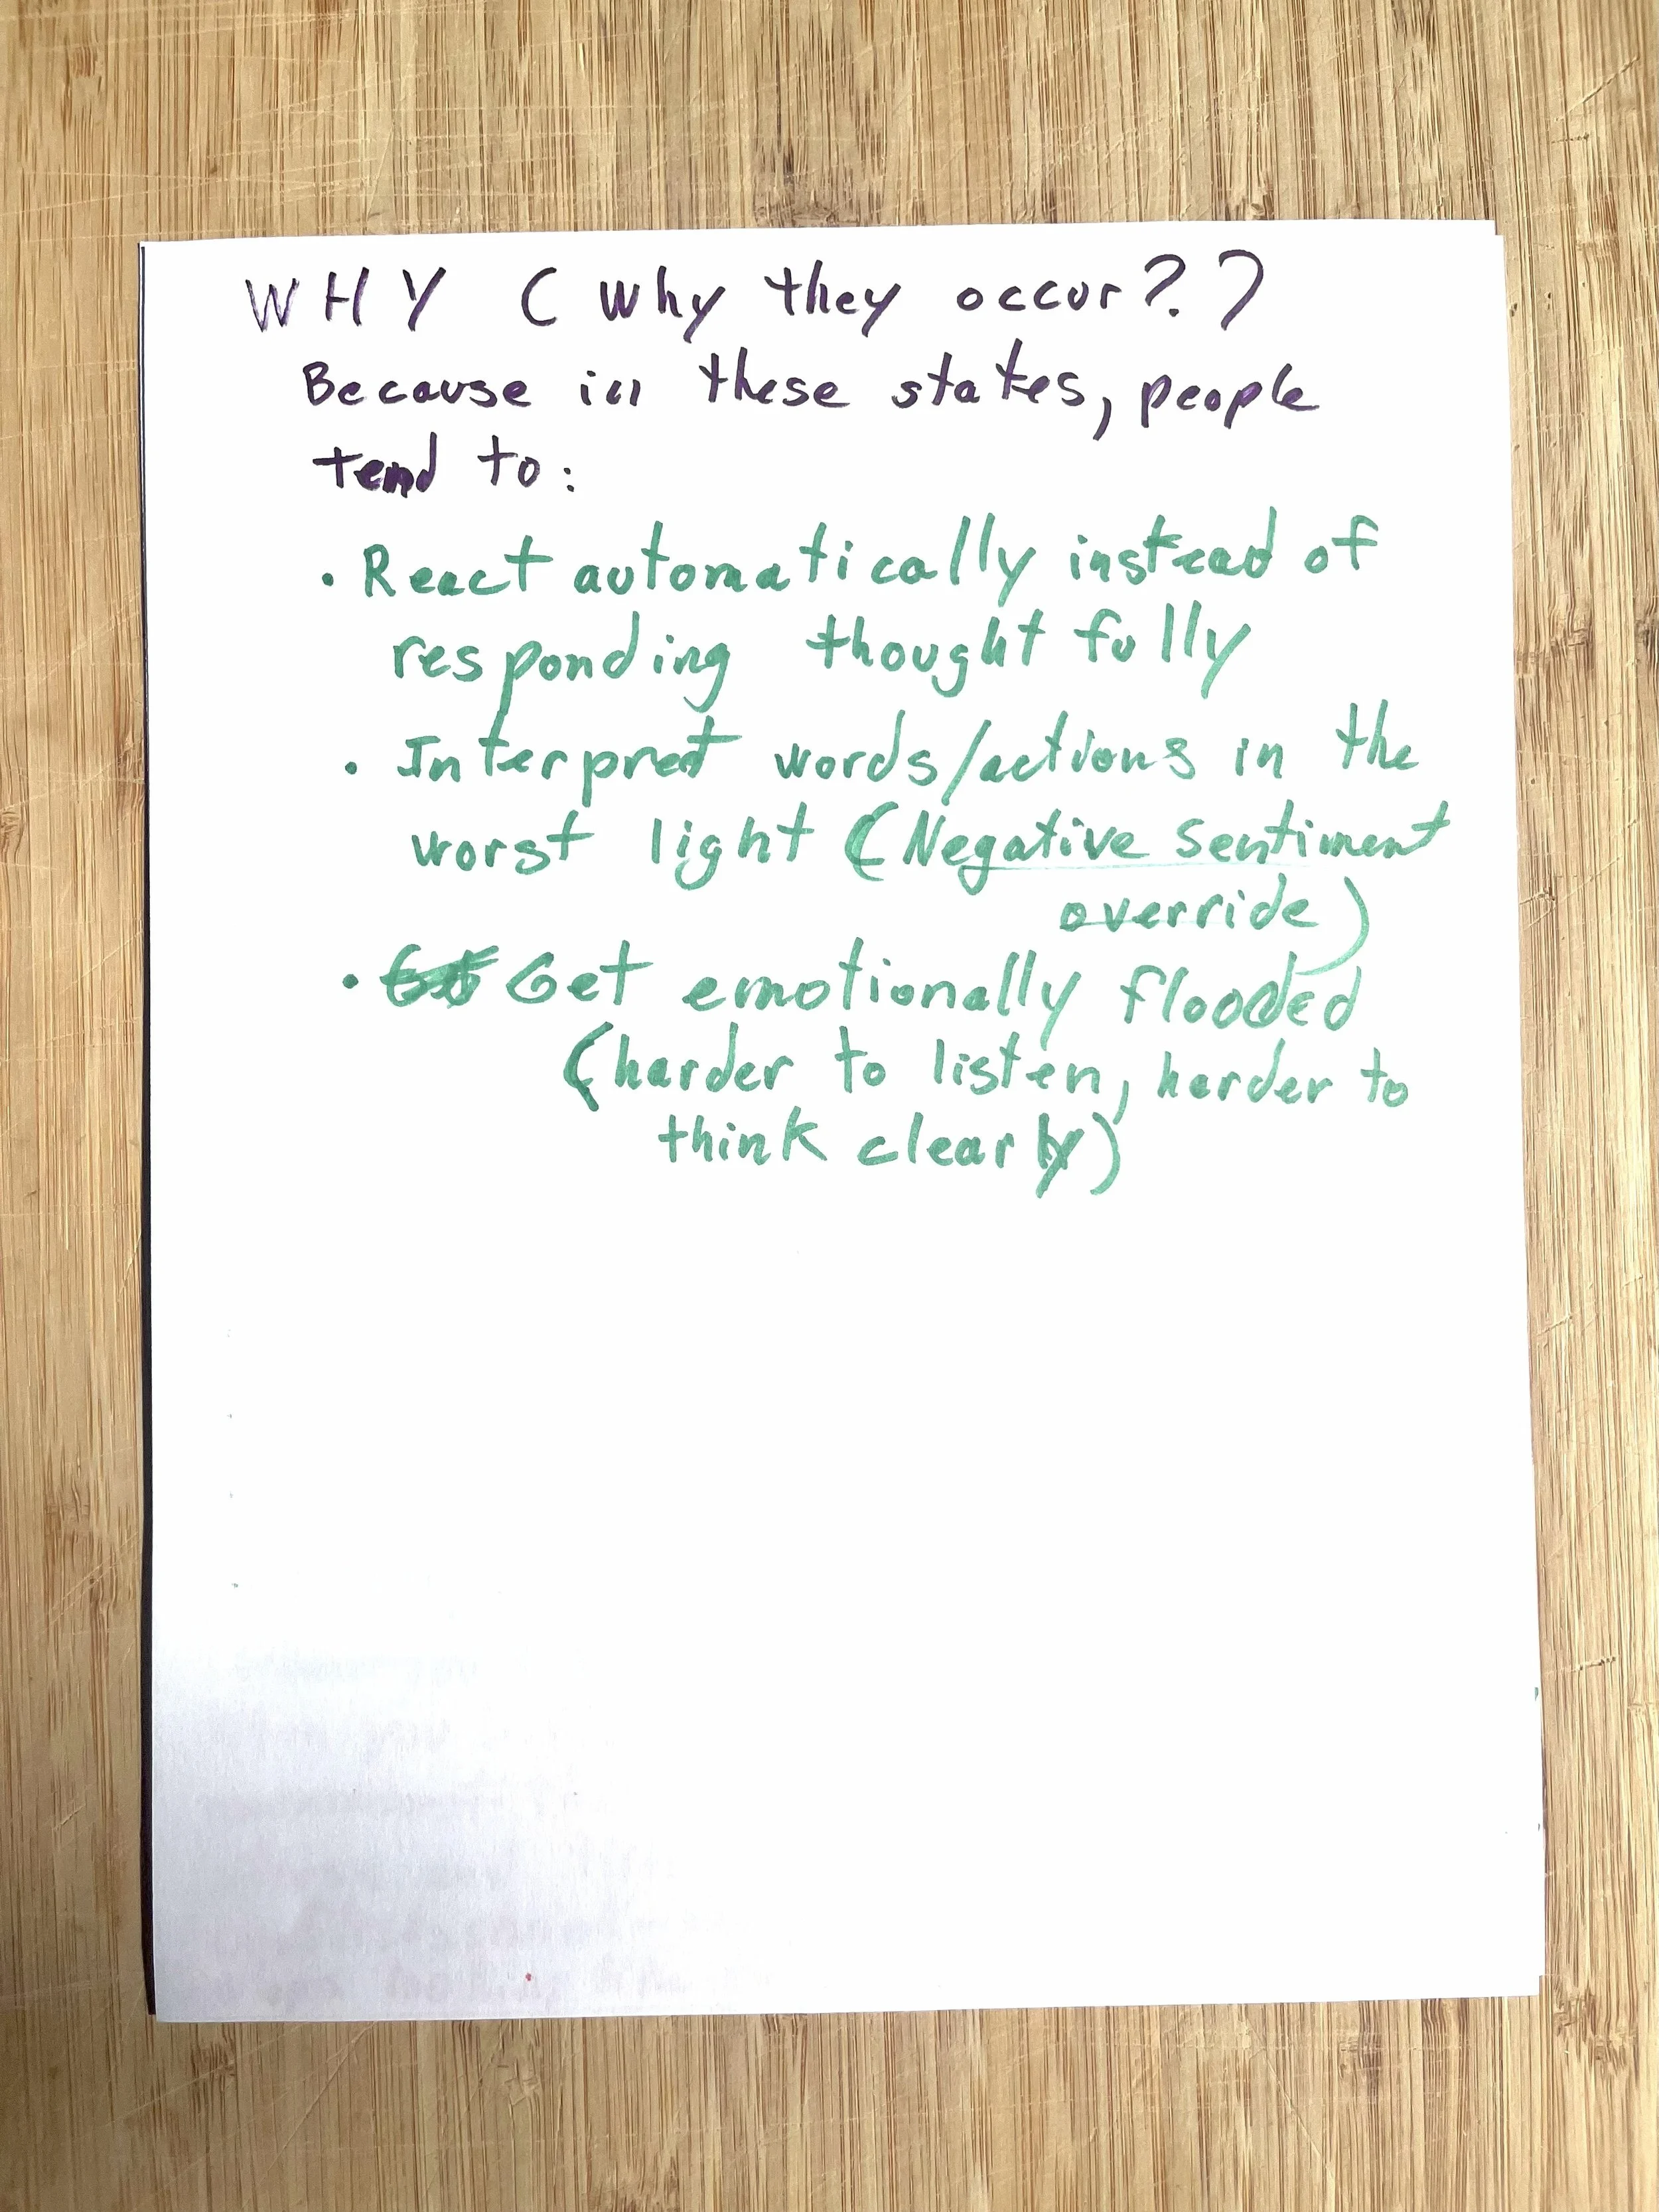 WHY (Why they occur?)
Because in these states, people
tend to:
• React automatically instead of
responding thoughtfully
• Interpret words/actions in the
worst light (Negative sentiment
override)
• Get emotionally flooded
(harder to listen, harder to
think clearly)